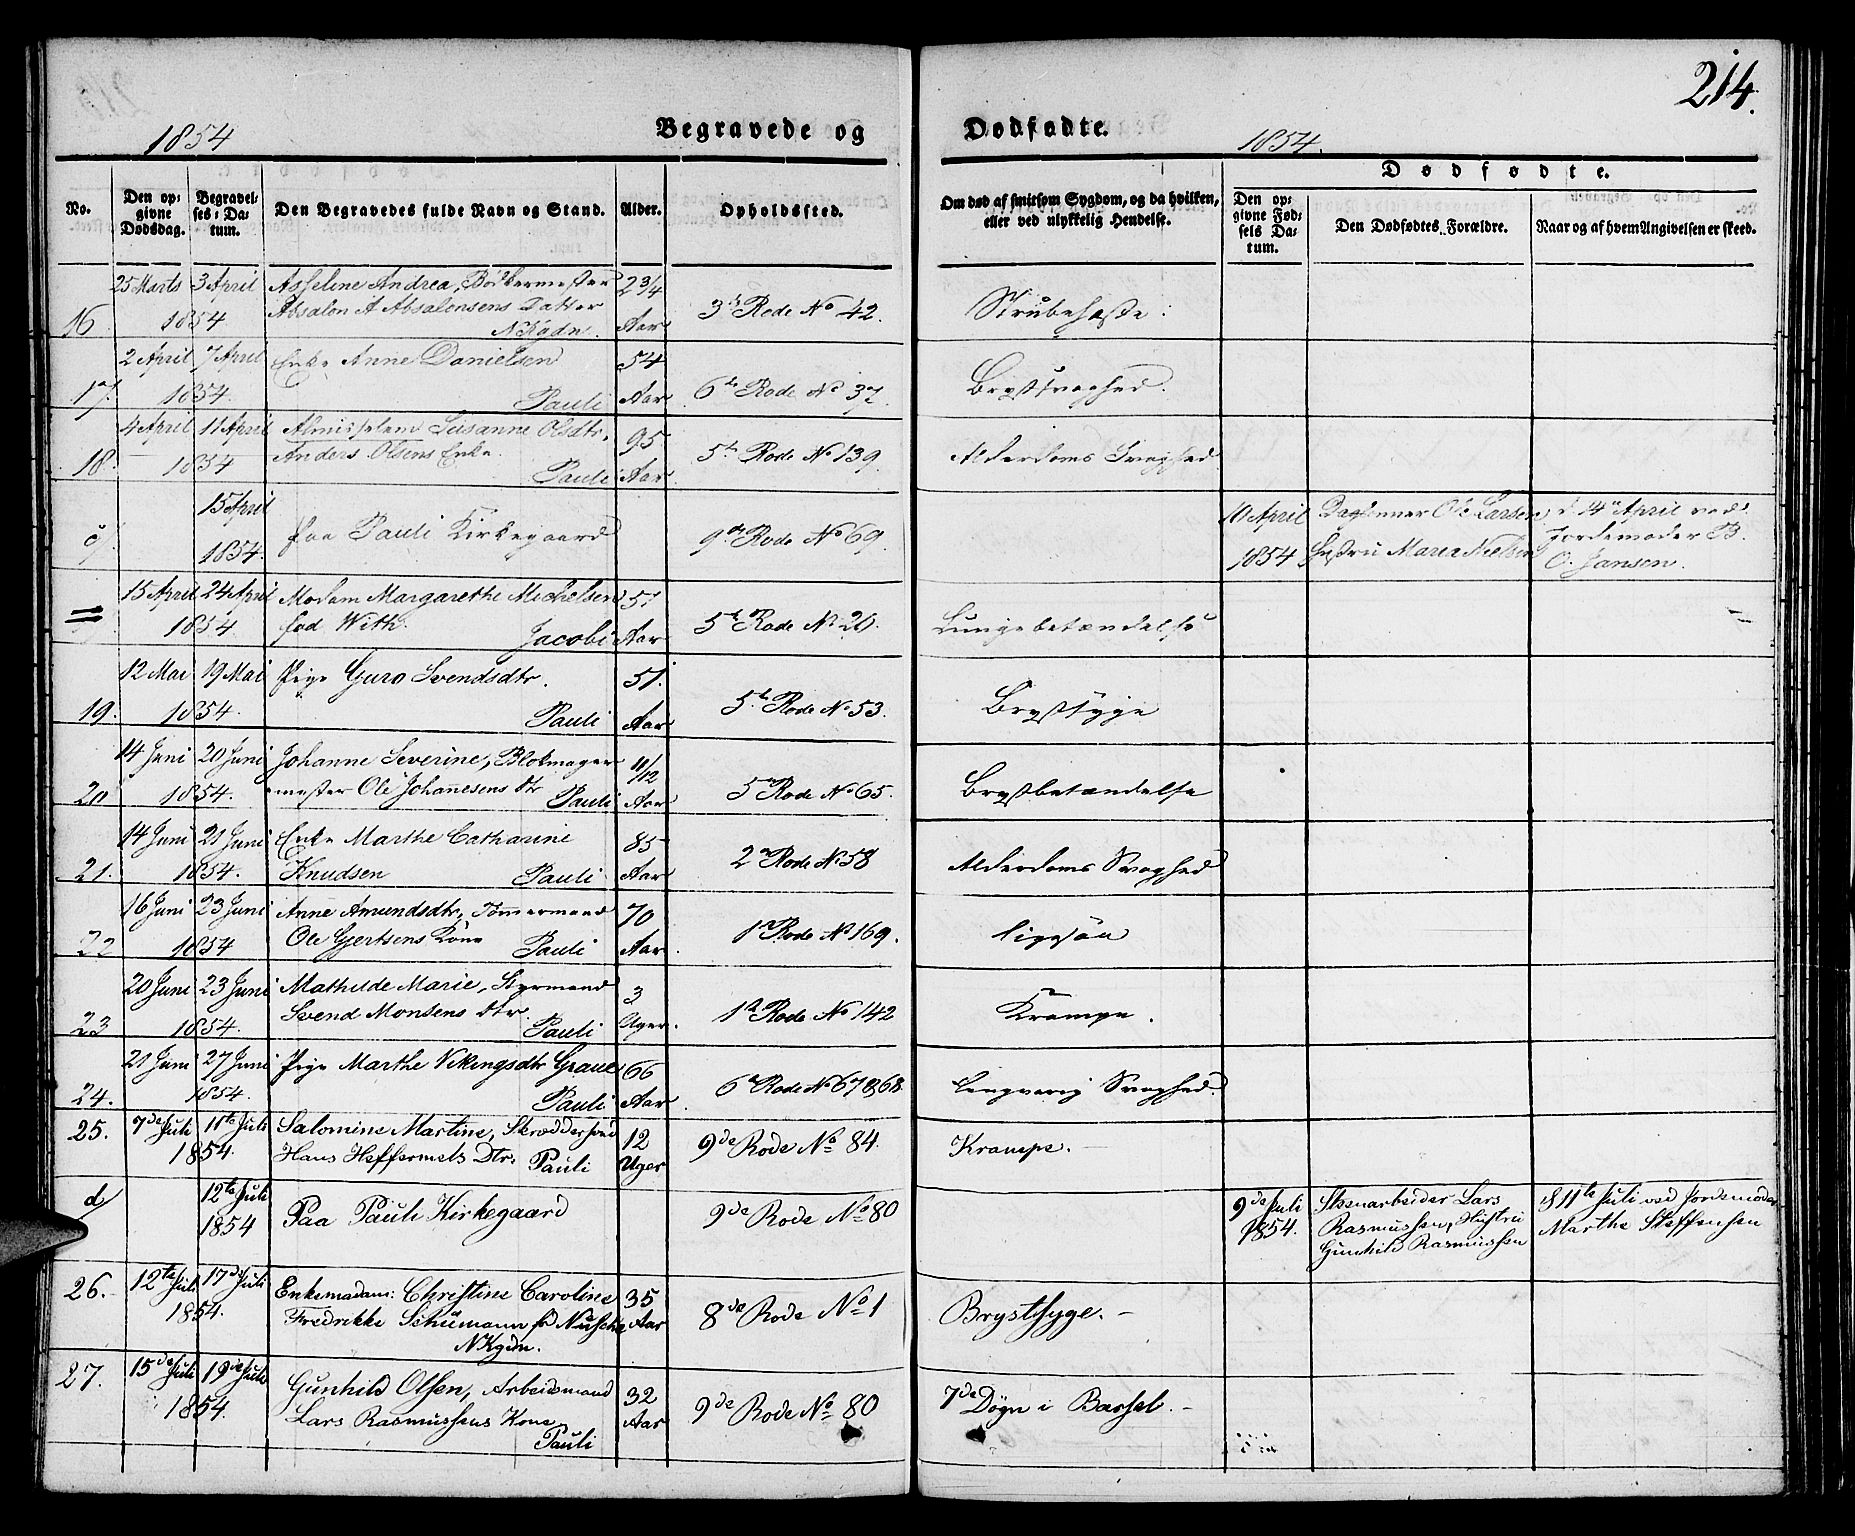 214.
1854 Begravede og Dødfødte. 1854.
Dødfødte.
No. Den opgivne Dødsdag. Begravelses-Datum. Den Begravedes fulde Navn og Stand. Alder. Opholdssted. Om død af smitsom Sygdom, og da hvilken, eller ved ulykkelig Hendelse. Den opgivne Fødsels Datum. Den Dødfødtes Forældre. Naar og af hvem Angivelsen er skeed.
25 Marts 3 April Asseline Andrea, Bødkermester 2 3/4
16 1854 Absalon A Absalonsens Datter Aar 3die Rode No 42. Strubehoste.
N Kgdn.
2 April 7 April Enke Anne Danielsen 54
17. 1854. Pauli Aar 6te Rode No 37. Brystsvaghed.
4 April 11 April Almisselem Susanne Olsdtr. 95
18. 1854 Anders Olsens Enke Pauli Aar 5te Rode No 139 Alderdoms Svaghed
15 April 10 April Daglønner Ole Larsen d 14de April ved
c/ 1854. Paa Pauli Kirkegaard 9de Rode No 69 1854 Hustru Maren Nielsen Jordemoder B.
O. Jansen.
15 April 24 April Madam Margarethe Michelsen 51
= 1854 fød With. Jacobi Aar 5te Rode No 20. Lungebetændelse =
12 Mai 19 Mai Pige Guro Svendsdtr. 51.
19. 1854. Pauli Aar 5te Rode No 53. Brystsyge
14 Juni 20 Juni Johanne Severine, Blokmager 11/12
20 1854. mester Ole Johanesens dtr Pauli Aar 5te Rode No 65. Brystbetændelse
14 Juni 21 Juni Enke Marthe Catharine 85
21. 1854. Knudsen Pauli Aar 2den Rode No 58 Alderdoms Svaghed
16 Juni 23 Juni Anne Amundsdtr, Tømmermand 70
22 1854 Ole Gjertsens Kone Pauli Aar 1ste Rode No 169. ligesaa
20 Juni 23 Juni Mathilde Marie, Styrmand 3
23 1854. Svend Monsens dtr. Pauli Uger. 1ste Rode No 142 Krampe.
21 Juni 27 Juni Pige Marthe Vikingsdtr Graue 66
24. 1854. Pauli Aar 6te Rode No 67&68. Langvarig Svaghed.
25. 7de Juli 11te Juli Salomine Martine, Skræddersvend 12 9de Rode No 84. Krampe.
1854. Hans Heffermels Dtr. Pauli Uger
d/ 12te Juli Paa Pauli Kirkegaard 9de Rode No 80 9de Juli Steenarbeider Lars d 11te Juli ved Jordemoder
1854 1854. Rasmussen, Hustru Marthe Steffensen
Gunhild Rasmussen
26. 12te Juli 17de Juli Enkemadam: Christine Caroline 35 8de Rode No 1 Brystsyge.
1854. Fredrikke Schümann fd Aar
N Kgdn.
27. 15de Juli 19de Juli Gunhild Olsen, Arbeidsmand 32 9de Rode No 80 7de Døgn i Barsel.
1854. Lars Rasmussens Kone Aar
Pauli